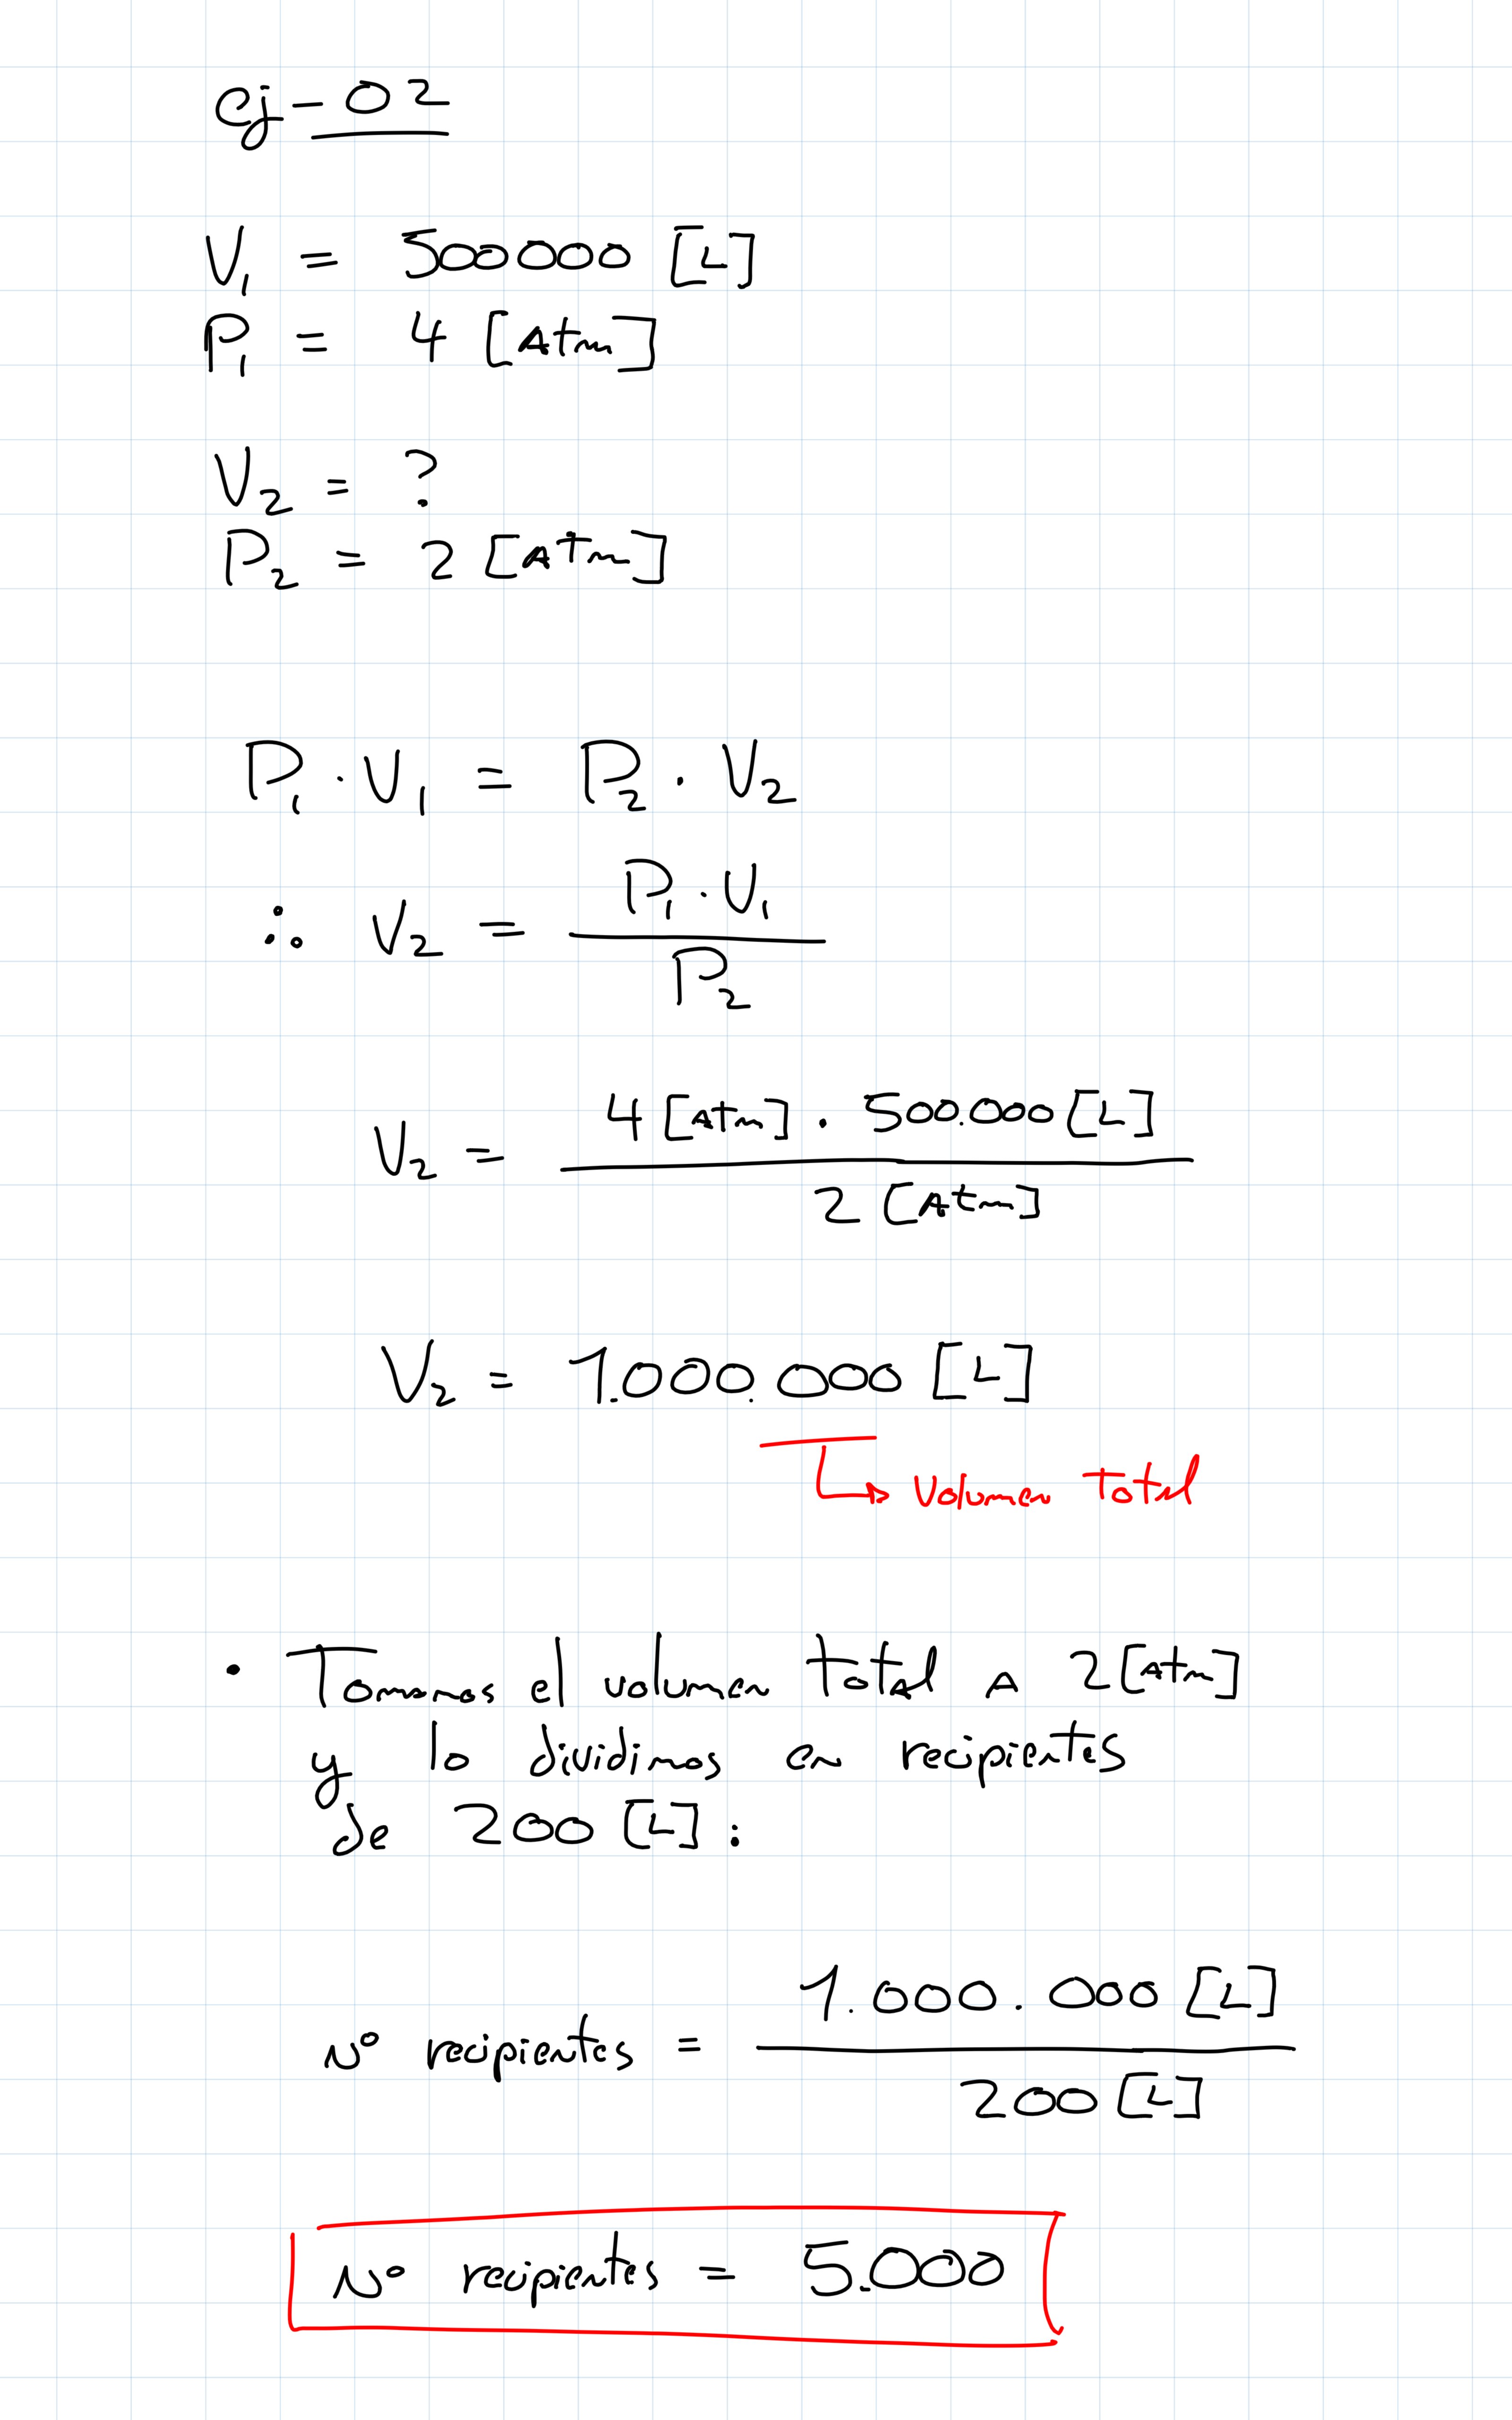 ej-02
V1 = 500000 [L]
P1 = 4 [Atm]
V2 = ?
P2 = 2 [Atm]
P1 · V1 = P2 · V2
∴ V2 = P1 · V1 / P2
V2 = 4 [Atm] · 500.000 [L] / 2 [Atm]
V2 = 1.000.000 [L]
↳ volumen total
• Tomamos el volumen total A 2 [Atm]
y lo dividimos en recipientes
de 200 [L] :
N° recipientes = 1.000.000 [L] / 200 [L]
N° recipientes = 5.000